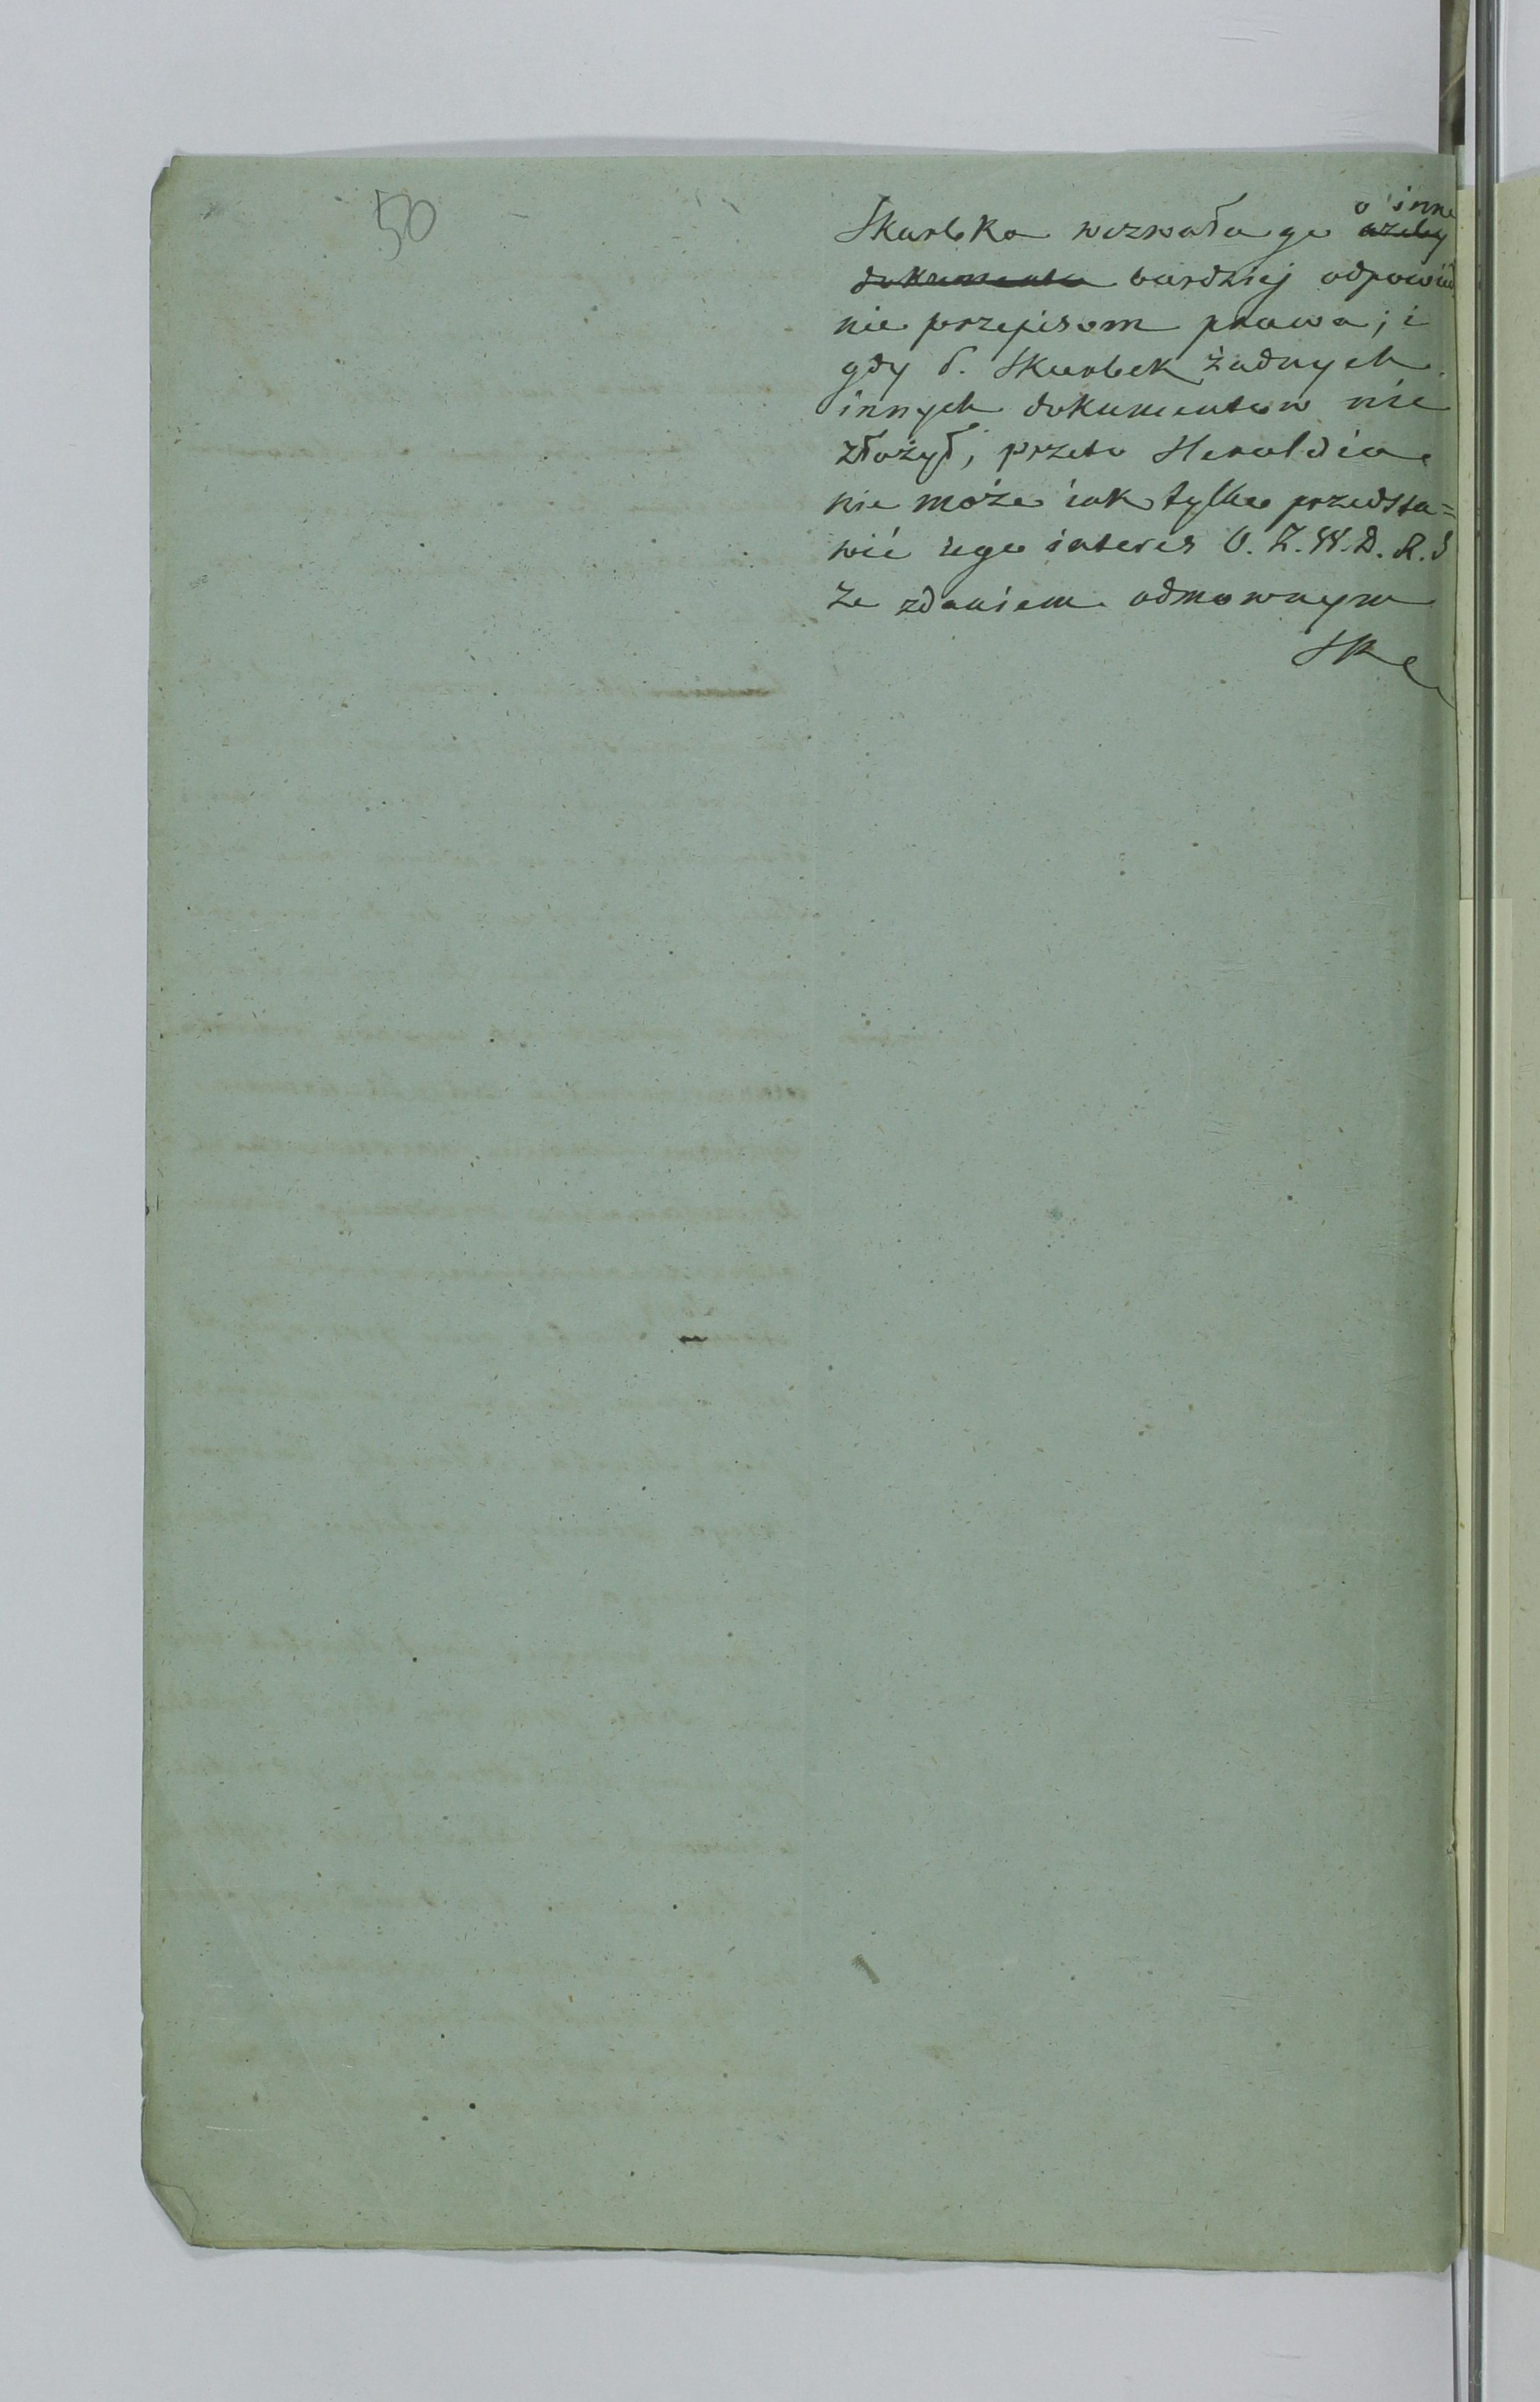 50
o inne
Skarbka wezwała go ażeby
dokumenta bardziej odpowied
nie przepisom prawa; i
gdy P. Skarbek żadnych
innych dokumentów nie
złożył, przeto Heroldia
nie może iak tylko przedsta=
wić iego interes O. Z. W. D. R. S
ze zdaniem odmownym